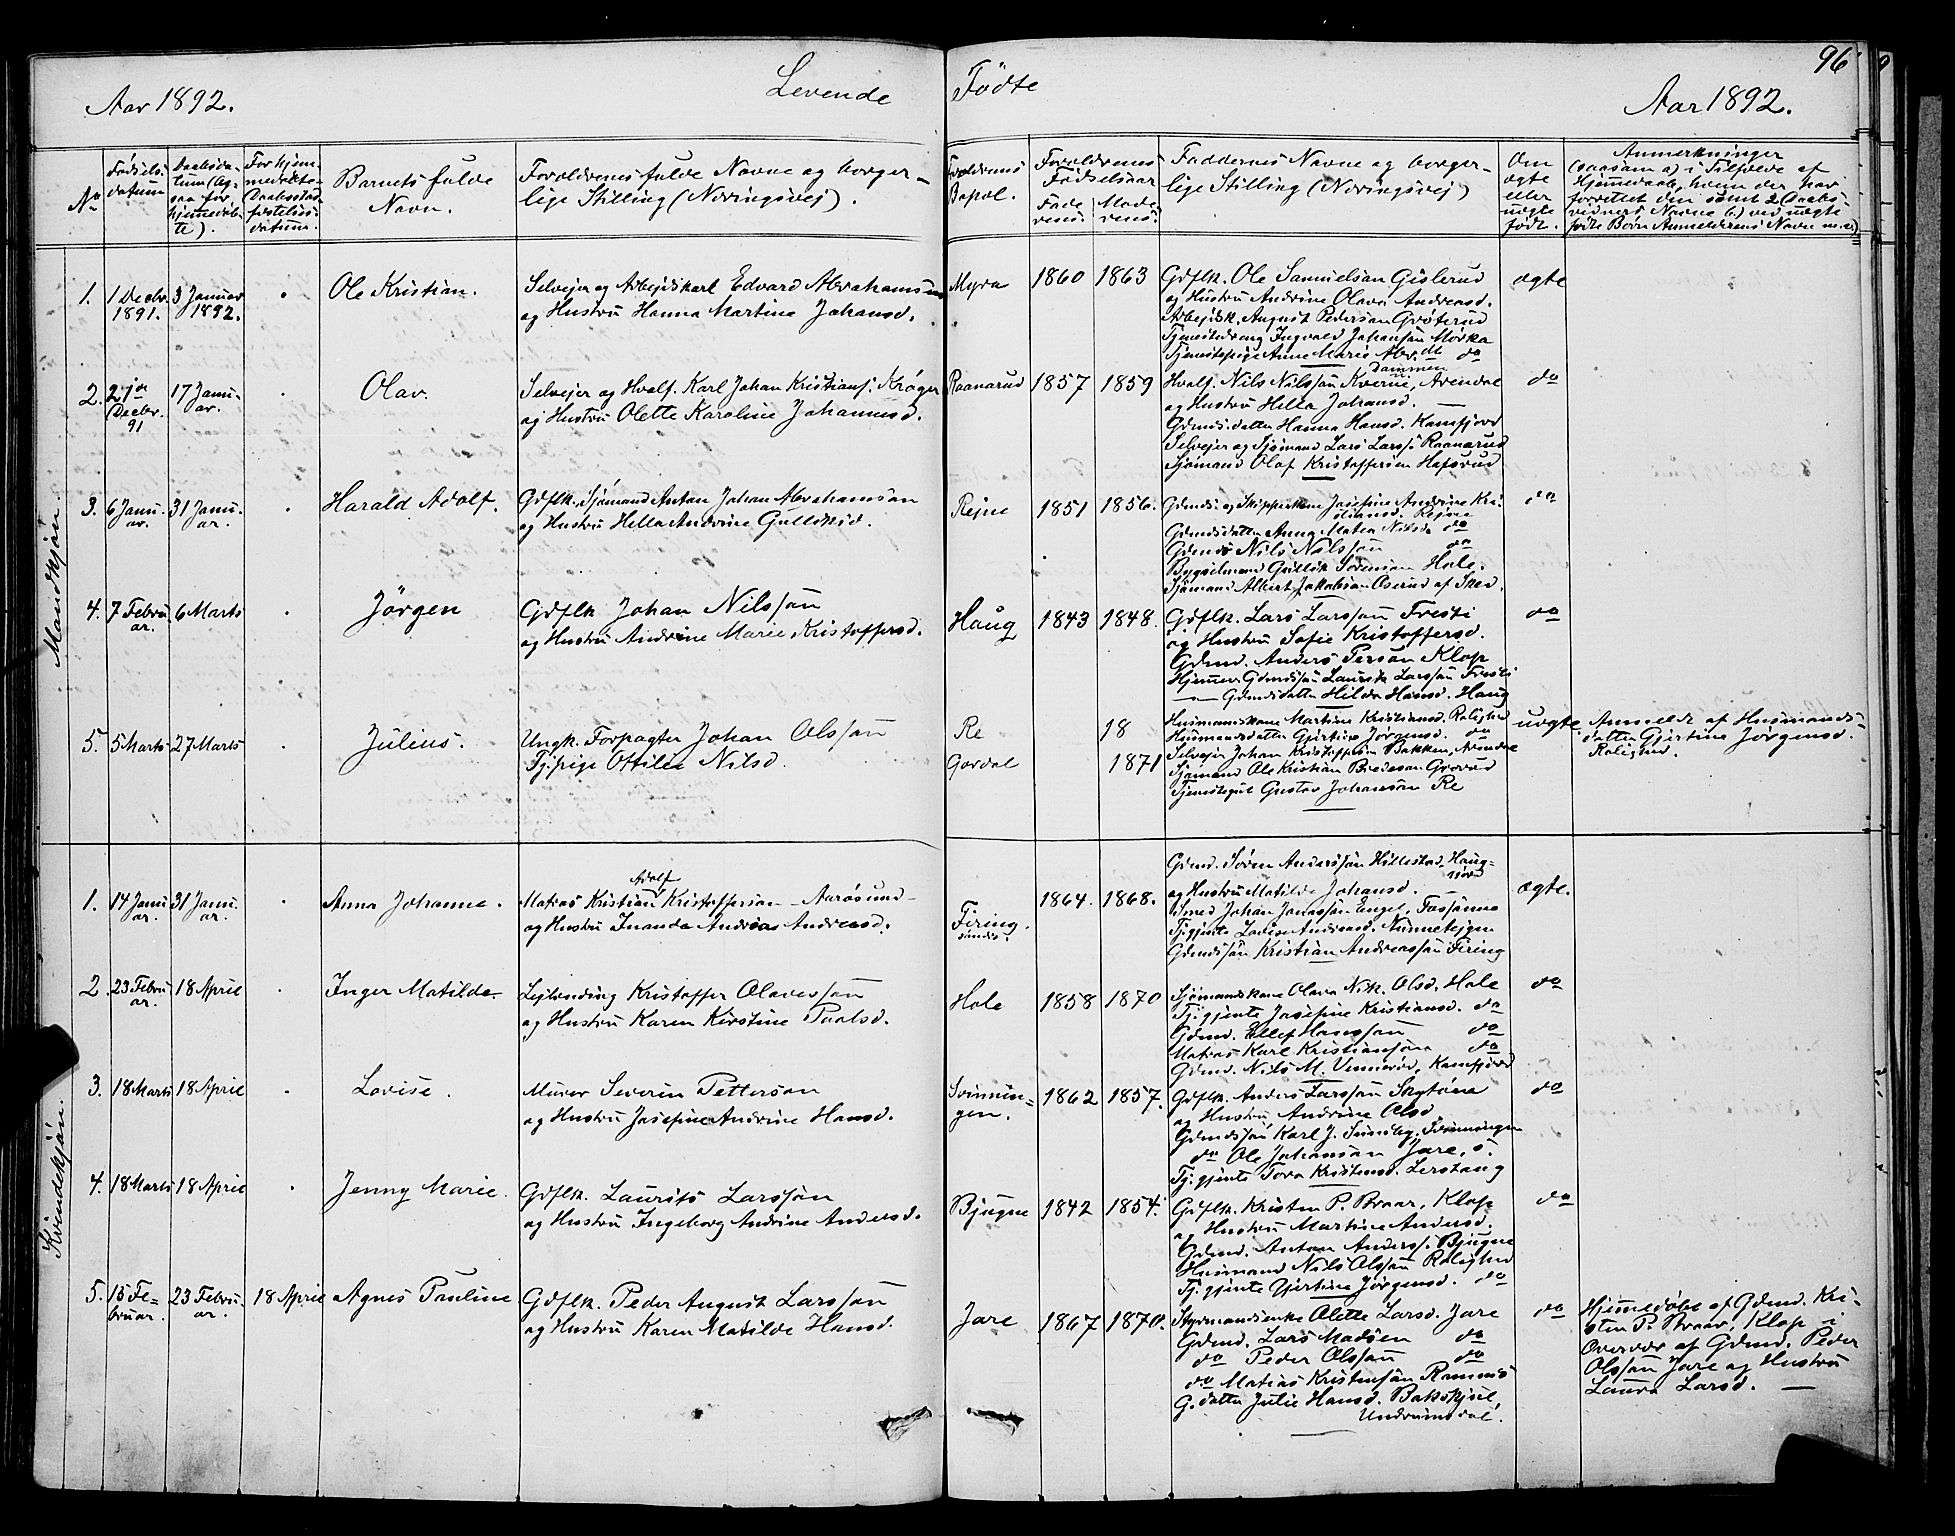 96
Aar 1892. Levende Fødte Aar 1892.
No
Fødsels-
datum
Daabsda-
tum (og-
saa for
hjemmedøb-
te).
For hjem-
medøbte
Daabsstad-
fæstelses-
datum.
Barnets fulde
Navn.
Forældrenes fulde Navne og borger-
lige Stilling (Næringsvej).
Forældrenes
Bopæl.
Forældrenes
Fødselsaar
Fade-
rens
Mode-
rens
Faddernes Navne og borger-
lige Stilling (Næringsvej)
Om
ægte
eller
uægte
født.
Anmerkninger
(saasom a) i Tilfælde af
Hjemmedaab, hvem der har
forrettet den samt 2 Daabs-
vidners Navne b) ved uægte
fødte Børn Anmelderens Navn m.v.)
Mandkjøn.
1. 1 Decbr. 1891. 3 Januar 1892. Ole Kristian.
Selvejer og Arbejdskarl Edvard Abrahamsen
og Hustru Hanna Martine Johansd.
Myra 1860 1863
Gdflk. Ole Samuelsøn Gislerud
og Hustru Andrine Olava Andreasd.
Arbejdsk. August Pedersøn Grøterud
Tjenestedreng Ingvald Johansøn Mørka
Tjenestepige Anne Marie Abr.dt. do
ægte
2. 27de Decbr. 91 17 Janu-ar. Olav.
Selvejer og Hvalf. Karl Johan Kristians. Krøger
og Hustru Olette Karoline Johannesd.
Raanerud 1857 1859
Dammen
Hvalf. Nils Nilssøn Kverne, Arendal
og Hustru Hella Johansd. —
Gdmds.datter Hanna Hansd. Kamfjord
Selvejer og Sjømand Lars Larss. Raanerud
Sjømand Olaf Kristoffersen Hafsrud
do
3. 6 Janu-ar. 31 Janu-ar. Harald Adolf.
Gdflk. Sjømand Anton Johan Abrahamsøn
og Hustru Hella Andrine Gulliksd.
Rejne 1851 1856.
Gdmds. og Skipperkone Josefine Andrine Kri-
stiansd. Rejne
Gdmdsdatter Anna Matea Nilsd. do
Gdmds Nils Nilssøn do
Bygselmand Gullik Sørensøn Hole.
Sjømand Albert Jakobsøn Oserud af Sked.
do
4. 7 Februar. 6 Marts Jørgen
Gdflk Johan Nilssøn
og Hustru Andrine Marie Kristoffersd.
Haug 1843 1848.
Gdflk. Lars Larssøn Fresti
og Hustru Sofie Kristoffersd.
Gdmd. Anders Persøn Klop
Hjemmev. Gdmdssøn Laurits Larssøn Fresti
— Gdmdsdatter Hilda Hansd. Haug
do
5. 5 Marts 27 Marts Julius.
Ungk. Forpagter Johan Olssøn
Tj.pige Otilie Nilsd.
Re 18
Gordal 1871
Husmannskone Martine Kristiansd. Rolighed
Husmandsdatter Gjertine Jørgensd. do
Selvejer Johan Kristoffersøn Bakken, Arendal
Sjømand Ole Kristian Bredesøn Grorud
Tjenestegut Gustav Johansøn Re
uægte.
Anmeldt af Husmands-
datter Gjertine Jørgensd.
Rolighed.
Kvindekjøn.
1. 14 Janu-ar. 31 Janu-ar. Anna Johanne.
Adolf
Matros Kristian Kristoffersøn – Aarøsund –
og Hustru Inanda Andrea Andreasd.
Firing. 1864. 1868.
Gdmd. Søren Anderssøn Hillestad, Haug-
og Hustru Matilde Johansd.
Smed Johan Jonassøn Engel, Fossanna
Tj.gjente Lovise Andreasd. Nunnetejgen
Gdmdssøn Kristian Andreassøn Firing
ægte.
2. 23 Februar. 18 April Inger Matilde.
Lejlending Kristoffer Olavessøn
og Hustru Karen Kirstine Paalsd.
Hole 1858 1870
Sjømandskone Olava Nik. Olsd. Hole
Tj.gjente Josefine Kristiansd. do
Gdmd. Ellef Hanssøn do
Matros Karl Kristiansøn do
Gdmd. Nils M. Vennerød, Kamfjord
do
3. 18 Marts 18 April Lovise.
Murer Severin Pettersøn
og Hustru Josefine Andrine Hansd.
Svinnin-gen. 1862 1857.
Gdflk. Anders Larssøn
og Hustru Andrine Olsd.
Gdmdssøn Karl J. Sundby, Svinningen
do Ole Johansøn Jare, s.
Tj.gjente Tora Kristensd. Lerstang
do
4. 18 Marts 18 April Jenny Marie.
Gdflk. Laurits Larssøn
og Hustru Ingeborg Andrine Andersd.
Bjugne 1842 1854.
Gdflk. Kristen P. Braar, Klop
og Hustru Martine Andersd.
Gdmd. Anton Anderss. Bjugne
Husmand Nils Olssøn Rolighed
Tj.gjente Gjertine Jørgensd. do
do
5. 15 Fe-bruar. 23 Febru-ar. 18 April Agnes Pauline
Gdflk. Peder August Larssøn
og Hustru Karen Matilde Hansd.
Jare 1867 1870.
Styrmandsenke Olette Larsd. Jare
Gdmd. Lars Madsen do
do Peder Olssøn do
do Matias Kristensøn Ramnes
G.datter Julie Hansd. Bakskjel,
Undrumsdal.
do
Hjemmedøbt af Gdmd. Kri-
sten P. Braar, Klop i
Overvær af Gdmd. Peder
Olssøn Jare og Hustru
Laura Larsd. —